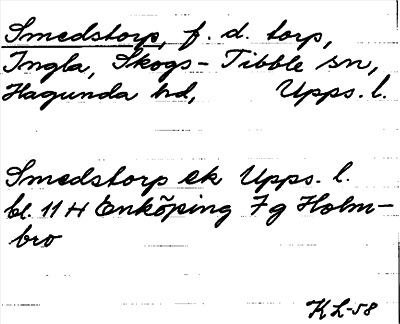 Smedstorp, f. d. torp,
Ingla, Skogs-Tibble sn,
Hagunda hd, Upps. l.
Smedstorp ek Upps. l.
bl. 11 H Enköping 7g Holm-
bro
KL-58